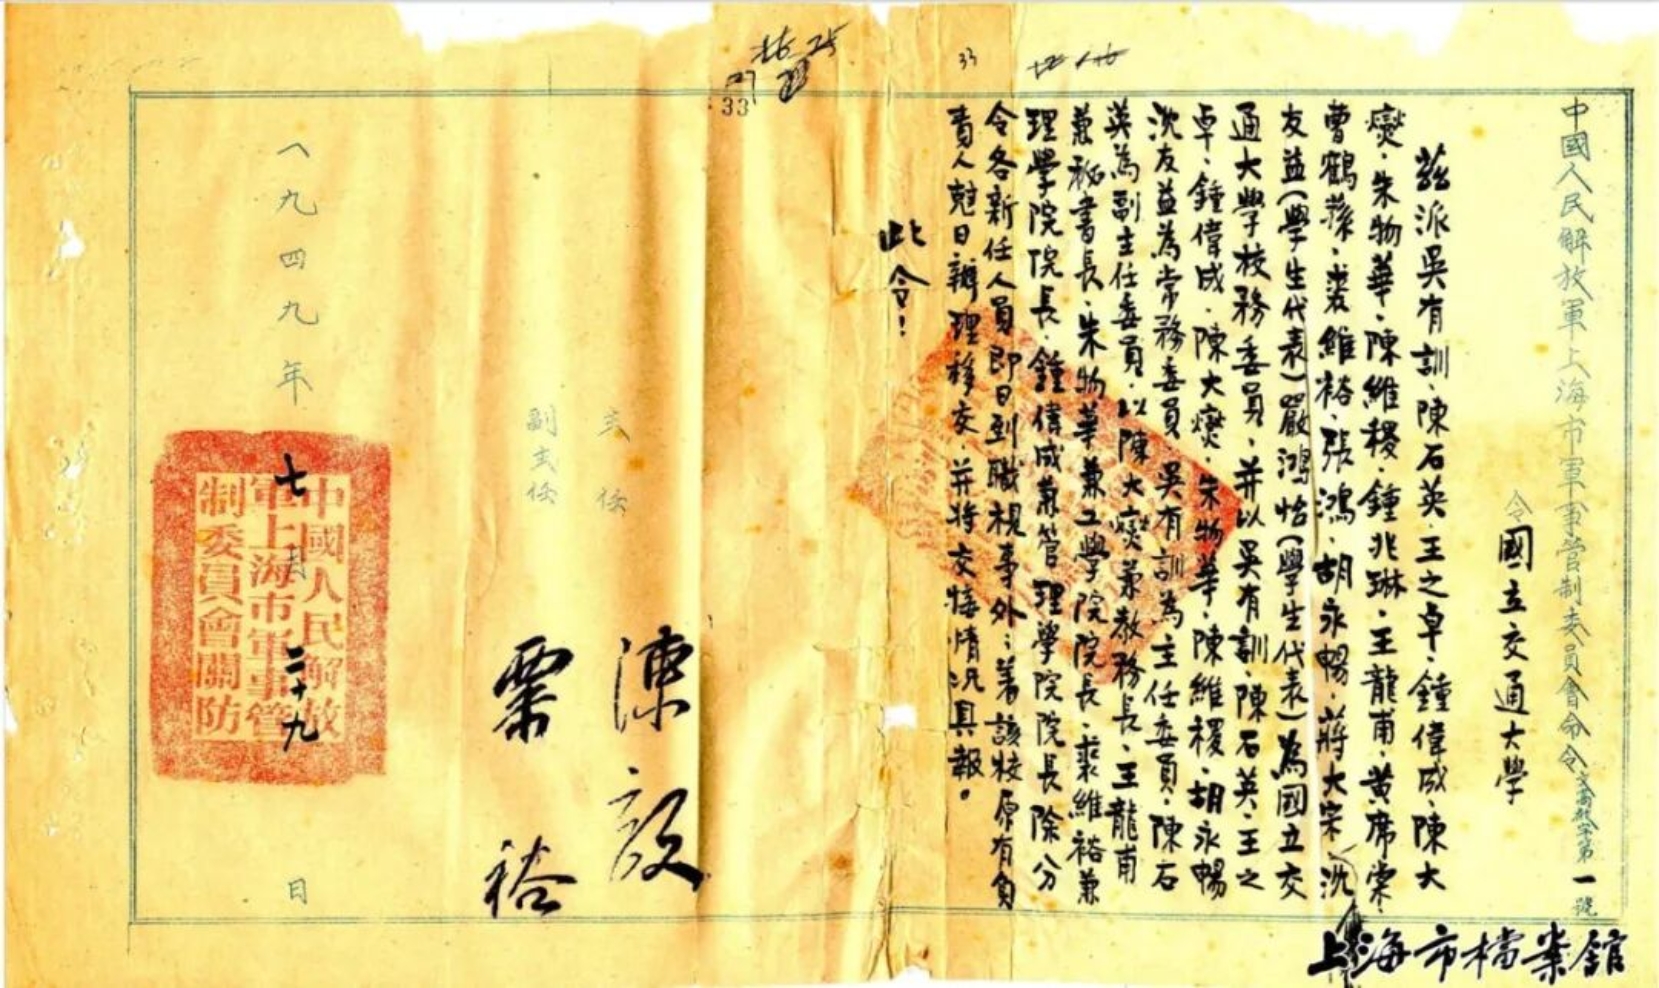 中國人民解放軍上海市軍事管制委員會命令
一號
令國立交通大學
茲派吳有訓、陳石英、王之卓、鍾偉成、陳大
燮、朱物華、陳維稷、鍾兆琳、王龍甫、黃席棠、
曹鶴蓀、裘維裕、張鴻、胡永暢、蔣大宗、沈
友益(學生代表)嚴鴻怡(學生代表)為國立交
通大學校務委員、并以吳有訓、陳石英、王之
卓、鍾偉成、陳大燮、朱物華、陳維稷、胡永暢
沈友益為常務委員、吳有訓為主任委員、陳石
英為副主任委員、以陳大燮兼教務長、王龍甫
兼秘書長、朱物華兼工學院院長、裘維裕兼
理學院院長、鍾偉成兼管理學院院長除分
令各新任人員即日到職視事外；着該校原有負
責人尅日辦理移交、并將交接情況具報。
此令！
主任 陳毅
副主任 粟裕
一九四九年七月二十九日
中國人民解放
軍上海市軍事管
制委員會關防
33
33
上海市檔案館